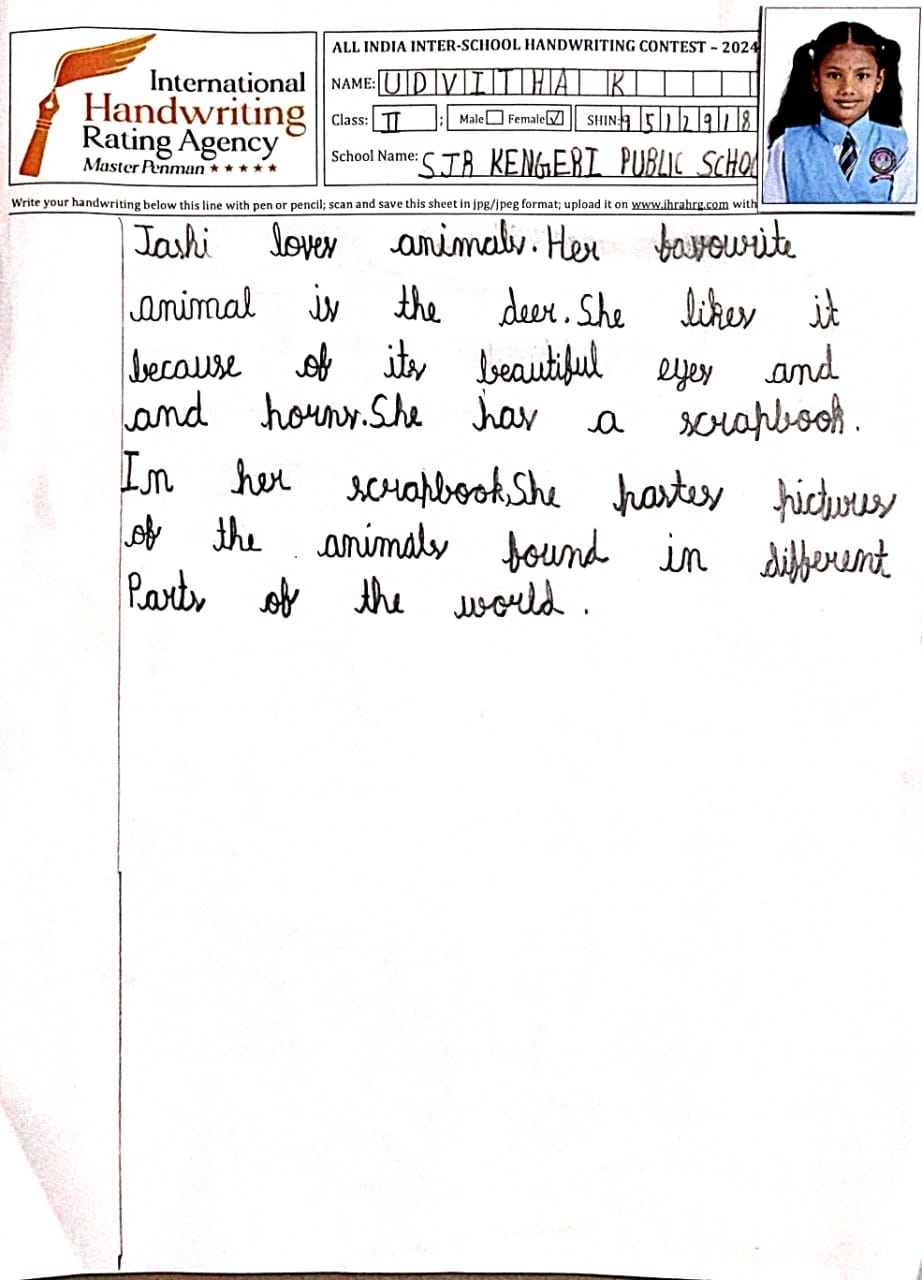 International
Handwriting
Rating Agency
Master Penman ★★★★★
ALL INDIA INTER-SCHOOL HANDWRITING CONTEST – 2024
NAME: UDVITHA K
Class: II ; Male Female ✓ SHIN: 9512918
School Name: SJR KENGERI PUBLIC SCHO
Write your handwriting below this line with pen or pencil; scan and save this sheet in jpg/jpeg format; upload it on www.ihrahrg.com with
Tashi loves animals. Her favourite
animal is the deer. She likes it
because of its beautiful eyes and
and horns. She has a scrapbook.
In her scrapbook, She pastes pictures
of the animals found in different
Parts of the world.